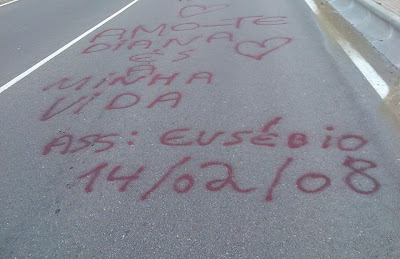 AMO-TE
DIANA
ÉS
A
MINHA
VIDA
ASS: EUSÉBIO
14/02/08